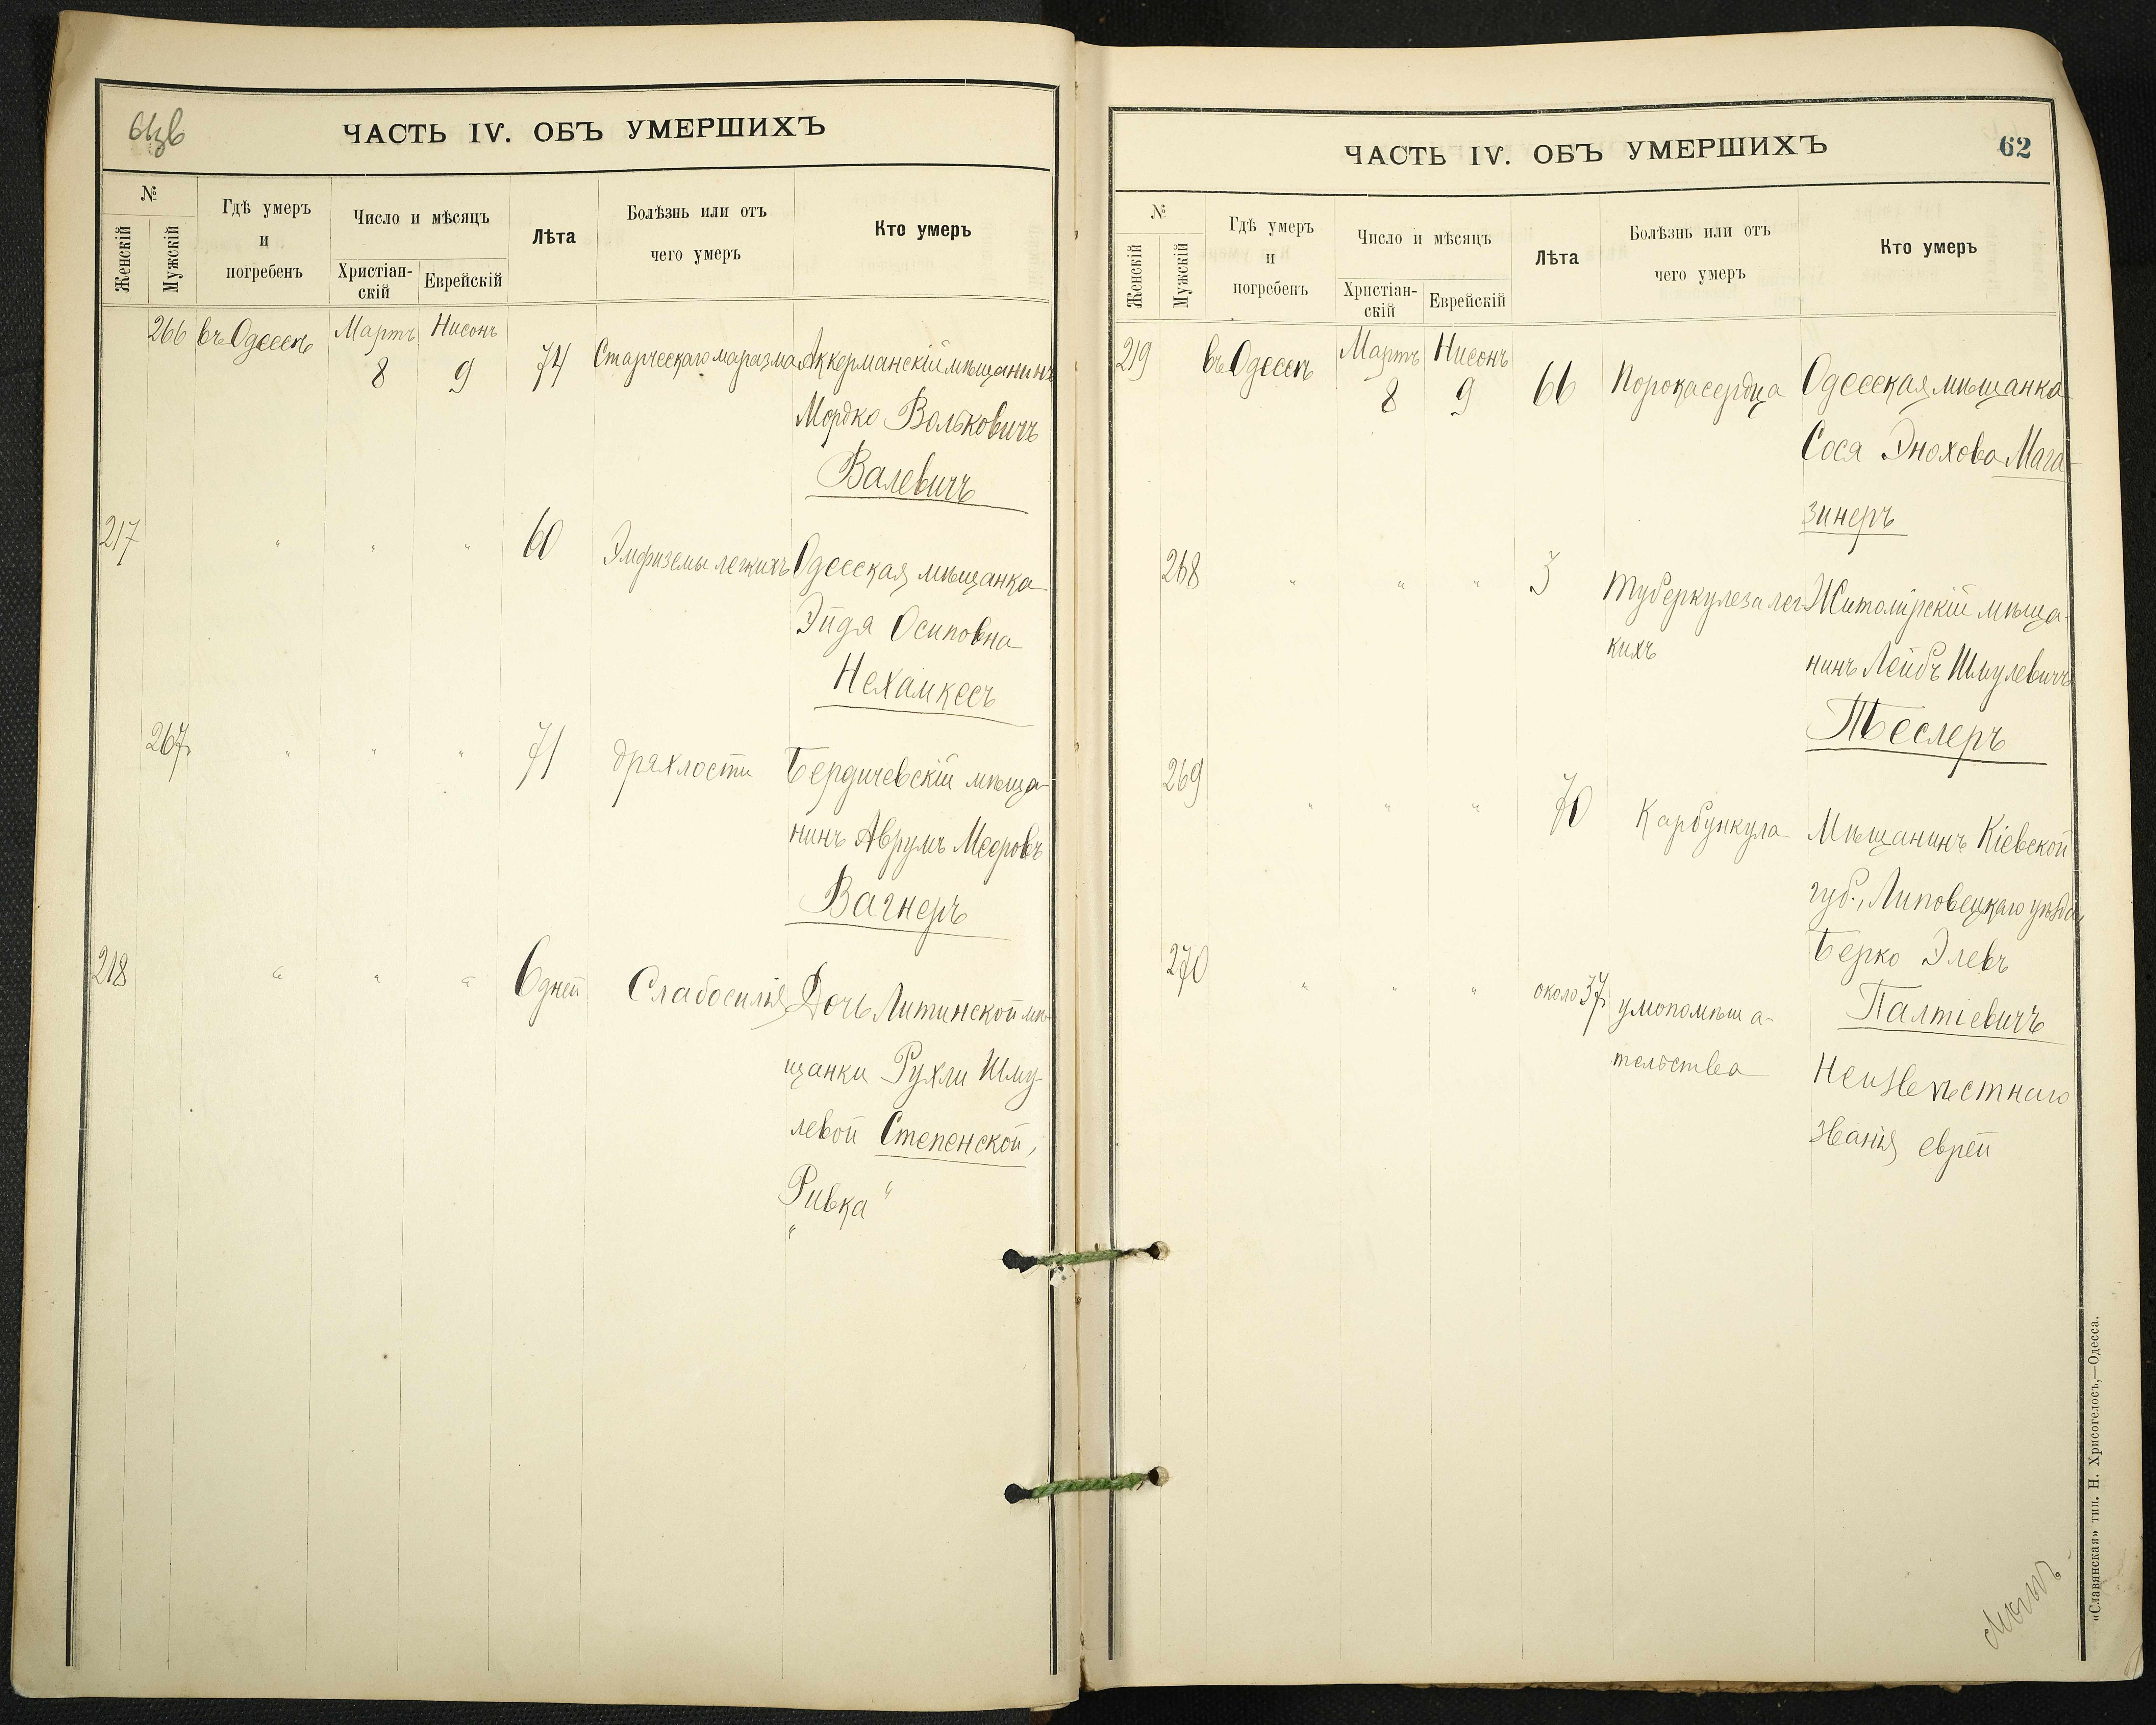 ЧАСТЬ IV. ОБЪ УМЕРШИХЪ
№
Женскій
Мужскій
Гдѣ умеръ
и
погребенъ
Число и мѣсяцъ
Христіан-
скій
Еврейскій
Лѣта
Болѣзнь или отъ
чего умеръ
Кто умеръ
266 въ Одессѣ Мартъ 8 Нисонъ 9 74 Старческаго маразма Аккерманскій мѣщанинъ
Мордко Вольковичъ
Валевичъ
217 " " " 60 Эмфиземы легкихъ Одесская мѣщанка
Эйдя Осиповна
Нехамкесъ
267 " " " 71 дряхлости Бердичевскій мѣща-
нинъ Аврумъ Мееровъ
Вагнеръ
218 " " " 6 дней Слабосилія Дочь Литинской мѣ-
щанки Рухли Шму-
левой Степенской,
"Ривка"
ЧАСТЬ IV. ОБЪ УМЕРШИХЪ
62
№
Женскій
Мужскій
Гдѣ умеръ
и
погребенъ
Число и мѣсяцъ
Христіан-
скій
Еврейскій
Лѣта
Болѣзнь или отъ
чего умеръ
Кто умеръ
219 въ Одессѣ Мартъ 8 Нисонъ 9 66 Порока сердца Одесская мѣщанка
Сося Энохова Мага-
зинеръ
268 " " " 3 Туберкулеза лег- Житомірскій мѣща-
кихъ нинъ Лейбъ Шмулевичъ
Теслеръ
269 " " " 70 Карбункула Мѣщанинъ Кіевской
губ., Липовецкаго уѣзда,
Берко Элевъ
Палтіевичъ
270 " " " около 37 умопомѣша-
тельства Неизвѣстнаго
званія еврей
«Славянская» тип. Н. Хрисогелосъ,—Одесса.